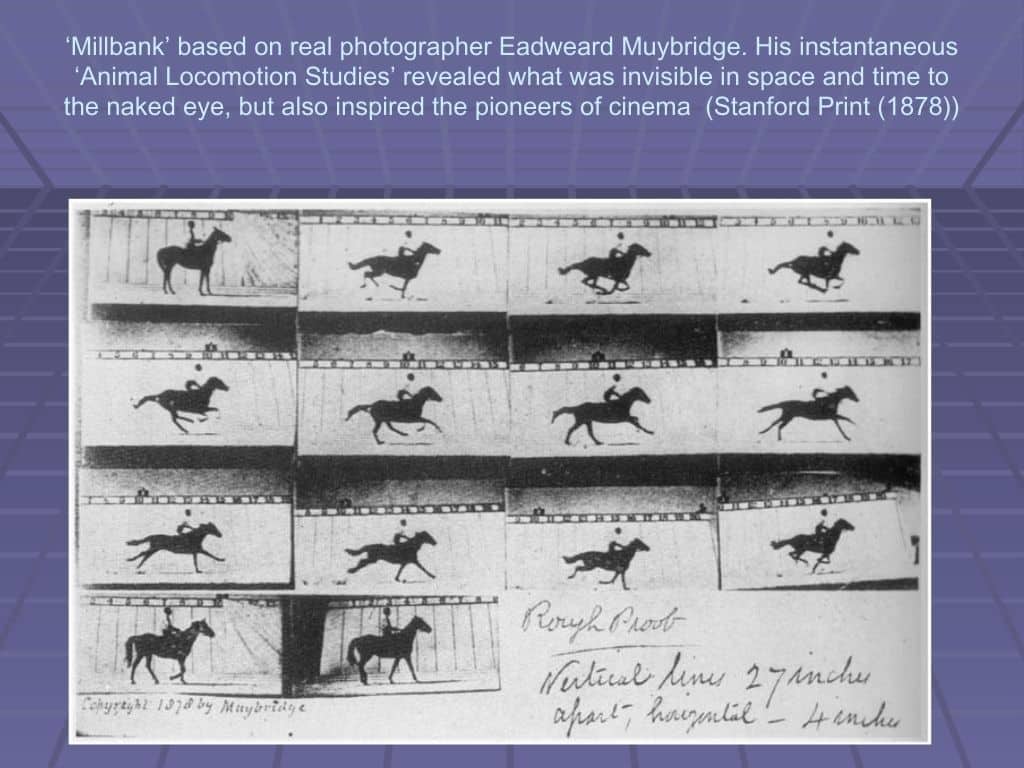 ‘Millbank’ based on real photographer Eadweard Muybridge. His instantaneous
‘Animal Locomotion Studies’ revealed what was invisible in space and time to
the naked eye, but also inspired the pioneers of cinema  (Stanford Print (1878))
Rough Proof
Vertical lines 27 inches
apart, horizontal – 4 inches
Copyright 1878 by Muybridge